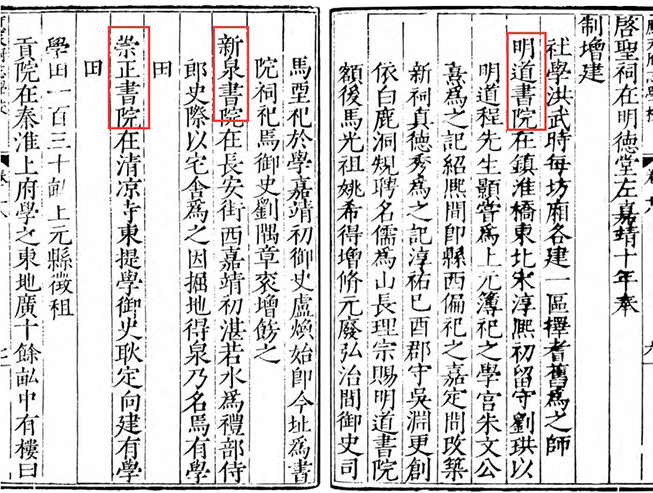 啓聖祠在明德堂左嘉靖十年奉
制增建
社學洪武時每坊廂各建一區擇耆舊爲之師
明道書院在鎮淮橋東北宋淳熙初留守劉珙以
明道程先生顥嘗爲上元簿祀之學宮朱文公
熹爲之記紹熙間卽縣西偏祀之嘉定間改築
新祠真德秀爲之記淳祐巳酉郡守吳淵更創
依白鹿洞規聘名儒爲山長理宗賜明道書院
額後馬光祖姚希得增脩元廢弘治間御史司
馬垔祀於學嘉靖初御史盧煥始卽今址爲書
院祠祀焉御史劉隅章袞增飭之
新泉書院在長安街西嘉靖初湛若水爲禮部侍
郎史際以宅舍爲之因掘地得泉乃名焉有學
田
崇正書院在清凉寺東提學御史耿定向建有學
田
學田一百三十畝上元縣徵租
貢院在秦淮上府學之東地廣十餘畝中有樓曰